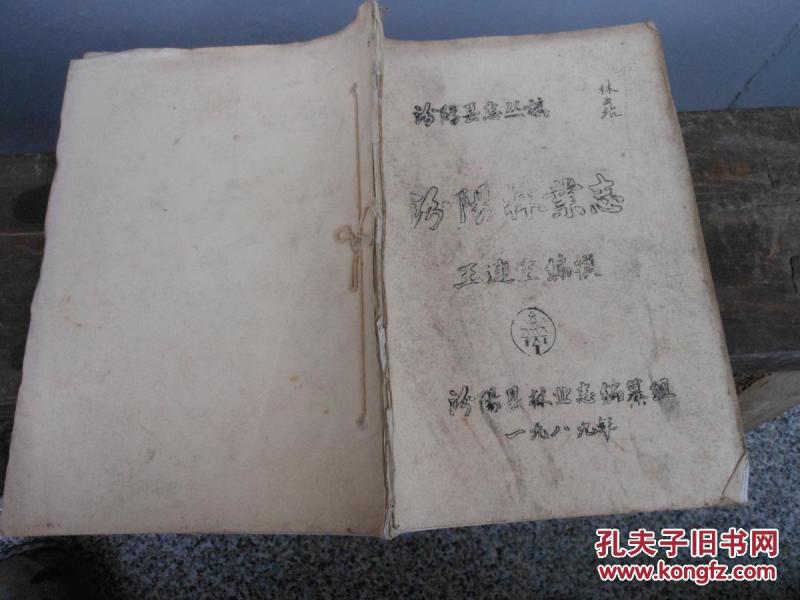 林业站
汾阳县志丛稿
汾陽林業志
王连生编撰
汾陽县林业志编纂组
一九八九年
孔夫子旧书网
www.kongfz.com